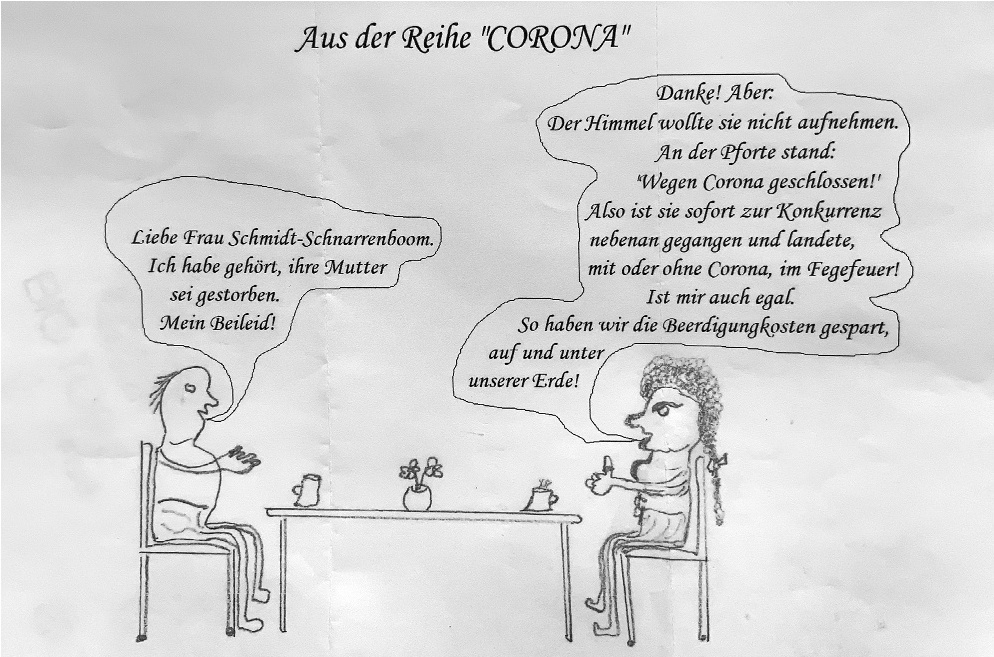 Aus der Reihe "CORONA"
Liebe Frau Schmidt-Schnarrenboom.
Ich habe gehört, ihre Mutter
sei gestorben.
Mein Beileid!
Danke! Aber:
Der Himmel wollte sie nicht aufnehmen.
An der Pforte stand:
'Wegen Corona geschlossen!'
Also ist sie sofort zur Konkurrenz
nebenan gegangen und landete,
mit oder ohne Corona, im Fegefeuer!
Ist mir auch egal.
So haben wir die Beerdigungkosten gespart,
auf und unter
unserer Erde!